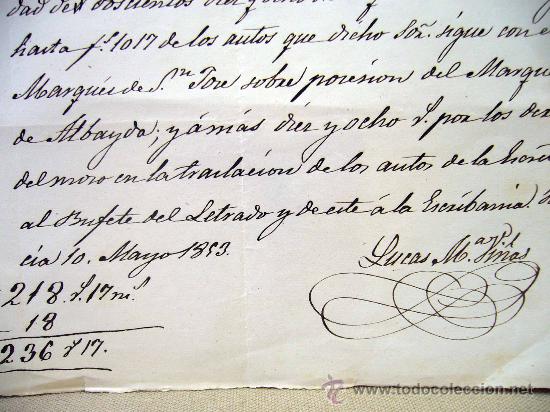 dad de doscientos diez y ocho
hasta fs. 1017 de los autos que dicho Sor. sigue con el
Marqués de Sn. José sobre posesion del Marqu
de Albayda; y á más diez y ocho rs. por los der
del mozo en la traslacion de los autos de la
al Bufete del Letrado y de este á la Escribania.
cia 10. Mayo 1853.
Lucas M.
218. rs. 17 ms.
18
236 rs 17.
www.todocoleccion.net